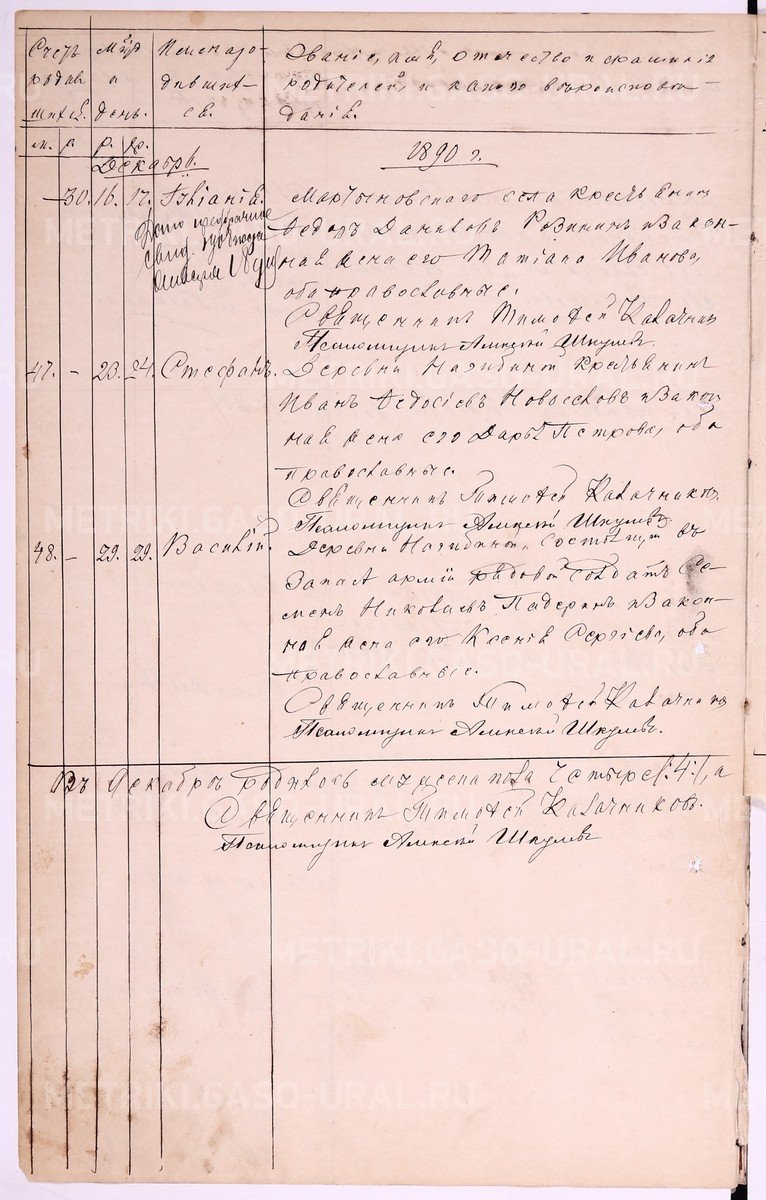 Счетъ родив шихся.
Мѣсяцъ и день.
Имена родившихся.
Званіе, имя, отчество и фамилія
родителей, и какого вѣроисповѣ-
данія.
м. р. кр.
Декабрь. 1890 г.
30. 16. 17. Іуліанія. Мартыновскаго села крестьянинъ
Ѳедоръ Даниловъ и закон-
ная жена его Татіана Иванова,
оба православные.
Священникъ Тимоѳей Калачник
Псаломщикъ Алексій Шкулевъ.
47. – 23. 24. Стефанъ. Деревни крестьянинъ
Иванъ Ѳедосіевъ Новоселовъ и закон
ная жена его Дарья Петрова, оба
православные.
Священникъ Тимоѳей Калачников
Псаломщикъ Алексій Шкулевъ.
48. – 29. 29. Василій. Деревни состоящій въ
Запасѣ арміи рядовой солдатъ Се-
менъ Николаевъ Падеринъ и закон-
ная жена его Ксенія Сергіева, оба
православные.
Священникъ Тимоѳей Калачников
Псаломщикъ Алексій Шкулевъ.
Въ Декабрѣ родилось мужеска пола четыре /:4:/, а
Священникъ Тимоѳей Калачниковъ.
Псаломщикъ Алексій Шкулевъ
METRIKI.GASO-URAL.RU